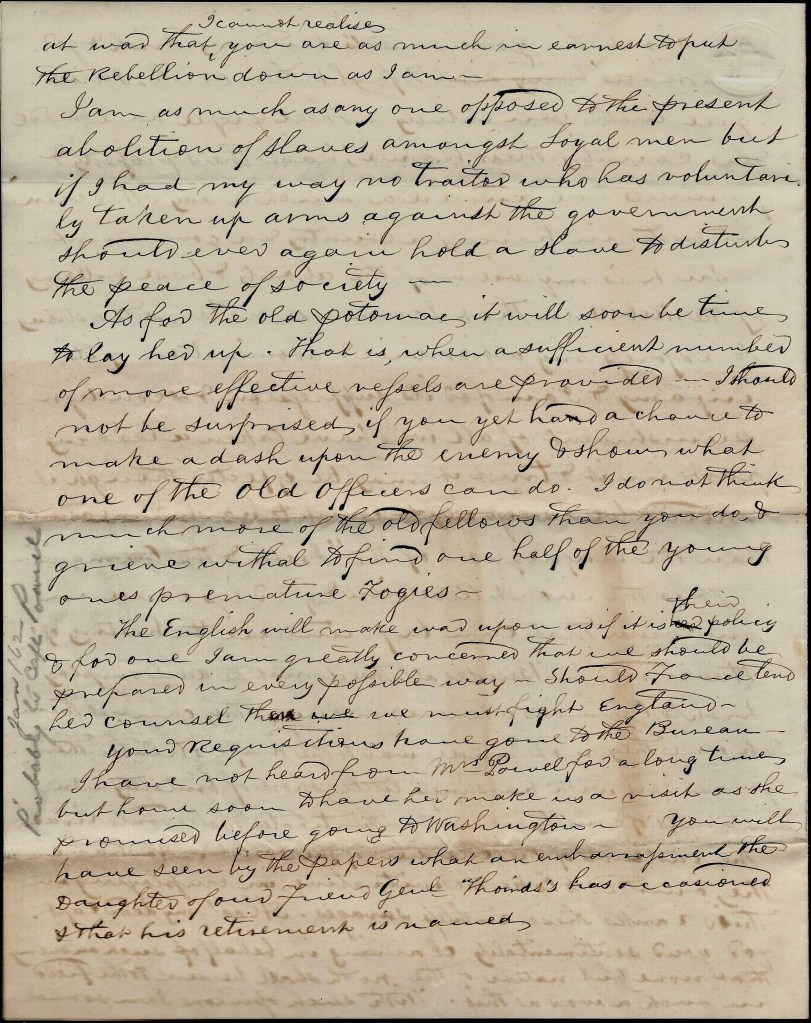 I cannot realise
at war that, you are as much in earnest to put
the Rebellion down as I am —
I am as much as any one opposed to the present
abolition of slaves amongst Loyal men but
if I had my way no traitor who has voluntari-
ly taken up arms against the government
should ever again hold a slave to disturb
the peace of society —
As for the old Potomac, it will soon be time
to lay her up. That is, when a sufficient number
of more effective vessels are provided — I should
not be surprised, if you yet had a chance to
make a dash upon the enemy & show what
one of the Old Officers can do. I do not think
much more of the old fellows than you do, &
grieve withal to find one half of the young
ones premature Fogies —
The English will make war upon us if it is their policy
& for one I am greatly concerned that we should be
prepared in every possible way — Should France lend
her counsel then we must fight England —
Your Requisitions have gone to the Bureau —
I have not heard from Mrs Powel for a long time,
but home soon to have her make us a visit as she
promised before going to Washington — you will
have seen by the papers what an embarrassment the
Daughter of our Friend Genl Thomas's has occasioned
& that his retirement is named
Jan '62 —
Probably to Capt Powell